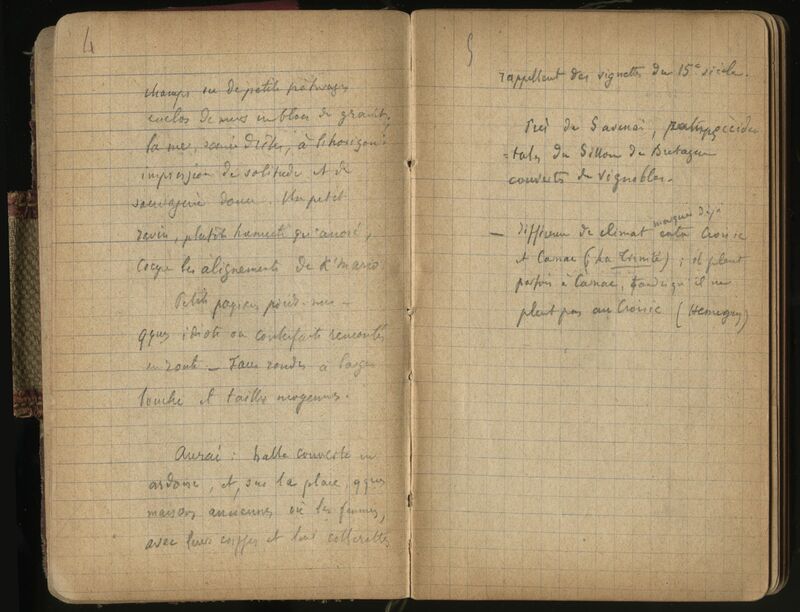 4
champs ou de petits pâturages
enclos de murs en blocs de granit,
la mer, semée d'îles, à l'horizon :
impression de solitude et de
sauvagerie douce. Un petit
ravin, plutôt humecté qu'arrosé,
coupe les alignements de K'mario
Petits paysans pieds-nus -
qques idiots ou contrefaits rencontrés
en route - Faces rondes à large
bouche et tailles moyennes.
Aurai : halle couverte en
ardoise, et, sur la place, qques
maisons anciennes où les femmes,
avec leurs coiffes et leurs collerettes
5
rappellent des vignettes du 15e siècle.
Près de Savenai, pentes occiden
-tales du Sillon de Bretagne
couvertes de vignobles.
- Différence de climat marquée déjà entre Croisic
et Carnac (La Trinité) ; il pleut
parfois à Carnac, tandis qu'il ne
pleut pas au Croisic